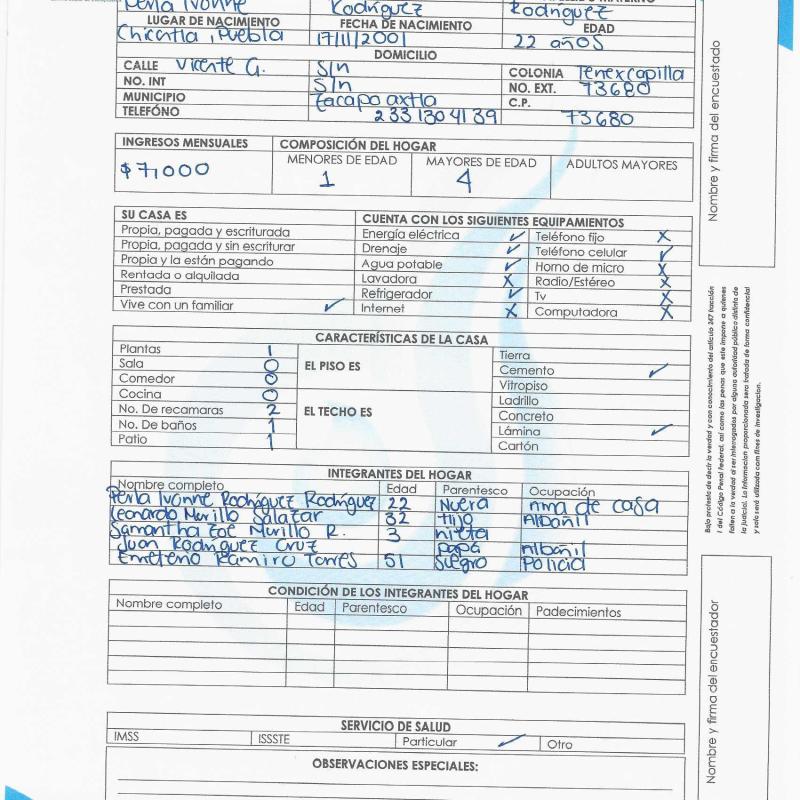 Perla Ivonne Rodríguez Rodríguez
LUGAR DE NACIMIENTO FECHA DE NACIMIENTO EDAD
Puebla 17/11/2001 22 años
DOMICILIO
CALLE Vicente G. S/n COLONIA Tenexcapilla
NO. INT S/n NO. EXT. 73680
MUNICIPIO Zacapoaxtla C.P.
TELEFÓNO 233 130 41 39 73680
INGRESOS MENSUALES COMPOSICIÓN DEL HOGAR
$7,000 MENORES DE EDAD MAYORES DE EDAD ADULTOS MAYORES
1 4
SU CASA ES CUENTA CON LOS SIGUIENTES EQUIPAMIENTOS
Propia, pagada y escriturada Energía eléctrica ✓ Teléfono fijo X
Propia, pagada y sin escriturar Drenaje ✓ Teléfono celular ✓
Propia y la están pagando Agua potable ✓ Horno de micro X
Rentada o alquilada Lavadora X Radio/Estéreo X
Prestada Refrigerador ✓ Tv X
Vive con un familiar ✓ Internet X Computadora X
CARACTERÍSTICAS DE LA CASA
Plantas 1 Tierra
Sala 0 EL PISO ES Cemento ✓
Comedor 0 Vitropiso
Cocina 0 Ladrillo
No. De recamaras 2 EL TECHO ES Concreto
No. De baños 1 Lámina ✓
Patio 1 Cartón
INTEGRANTES DEL HOGAR
Nombre completo Edad Parentesco Ocupación
Perla Ivonne Rodríguez Rodríguez 22 Nuera ama de casa
Leonardo Murillo Salazar 32 hijo Albañil
Samantha Zoé Murillo R. 3 nieta
Juan Rodríguez Cruz papá Albañil
Emeterio Ramiro Torres 51 Suegro Policía
CONDICIÓN DE LOS INTEGRANTES DEL HOGAR
Nombre completo Edad Parentesco Ocupación Padecimientos
SERVICIO DE SALUD
IMSS ISSSTE Particular ✓ Otro
OBSERVACIONES ESPECIALES:
Nombre y firma del encuestado
Bajo protesta de decir la verdad y con conocimiento del artículo 247 fracción
I del Código Penal Federal, así como las penas que este impone a quienes
falten a la verdad al ser interrogados por alguna autoridad pública distinta de
la judicial. La información proporcionada sera tratada de forma confidencial
y solo será utilizada con fines de investigacion.
Nombre y firma del encuestador